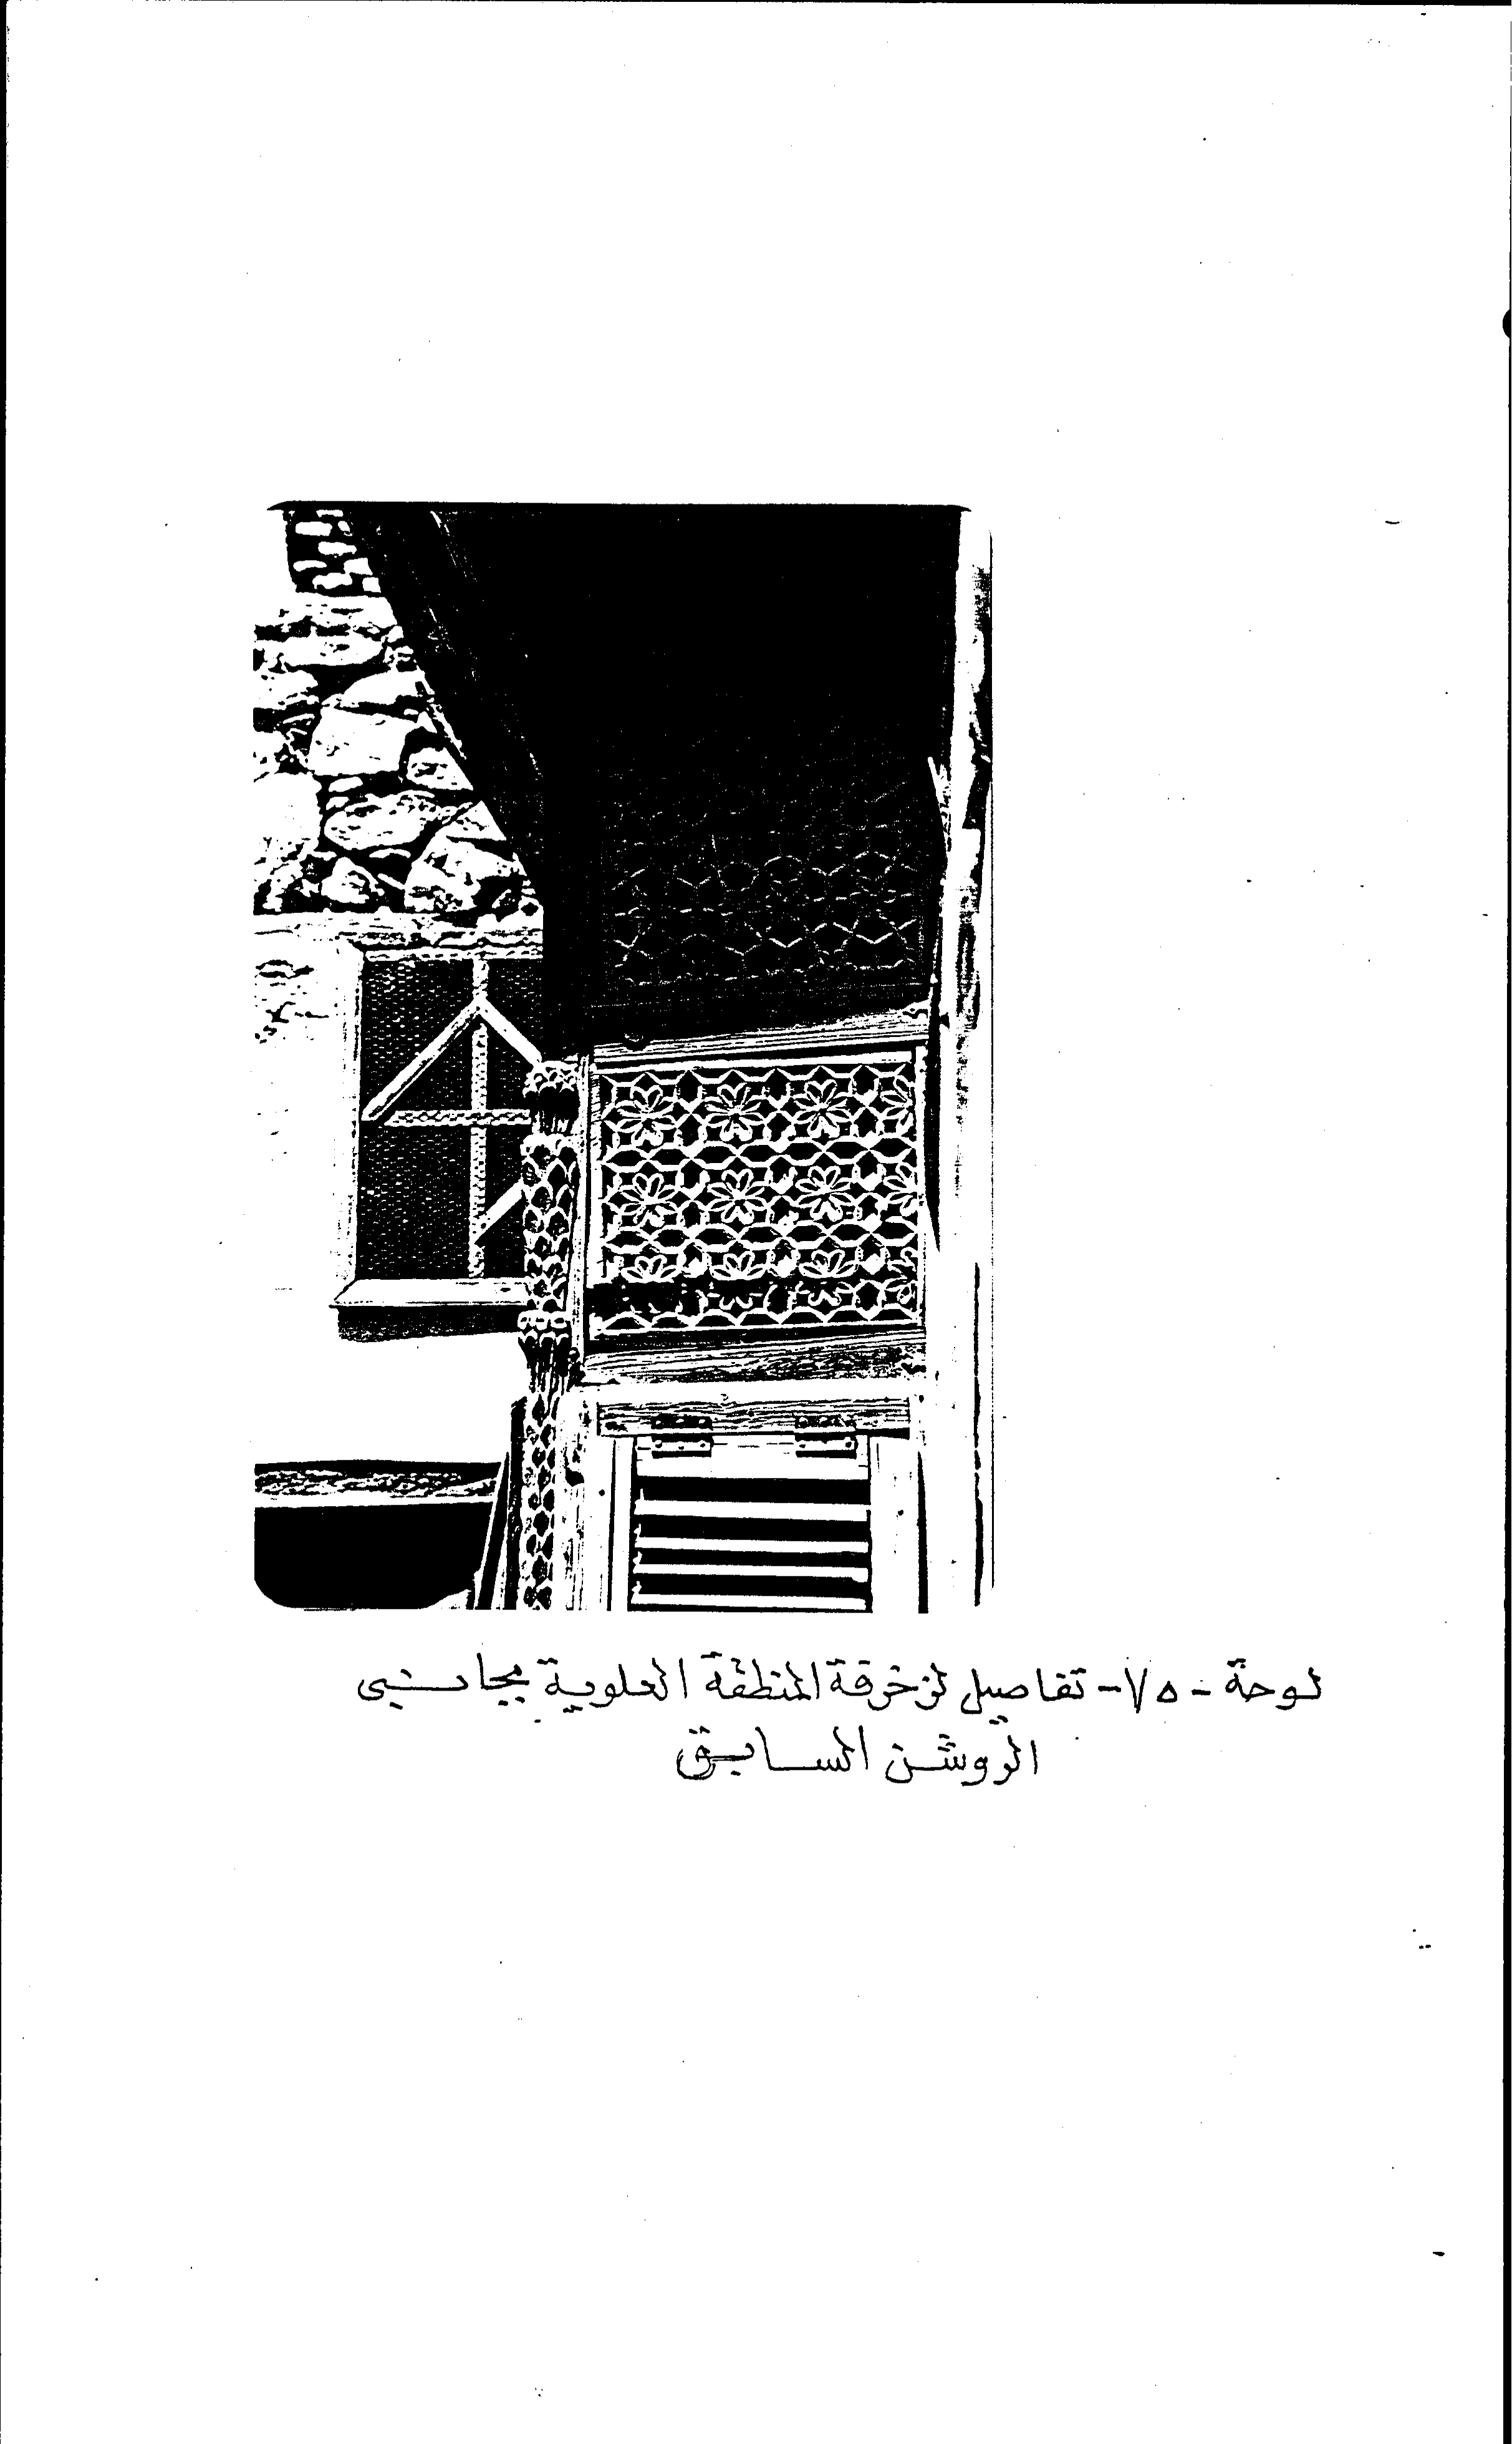 لوحة - ٧٥ - تفاصيل لزخرفة المنطقة العلوية بجانبى
الروشن السابق